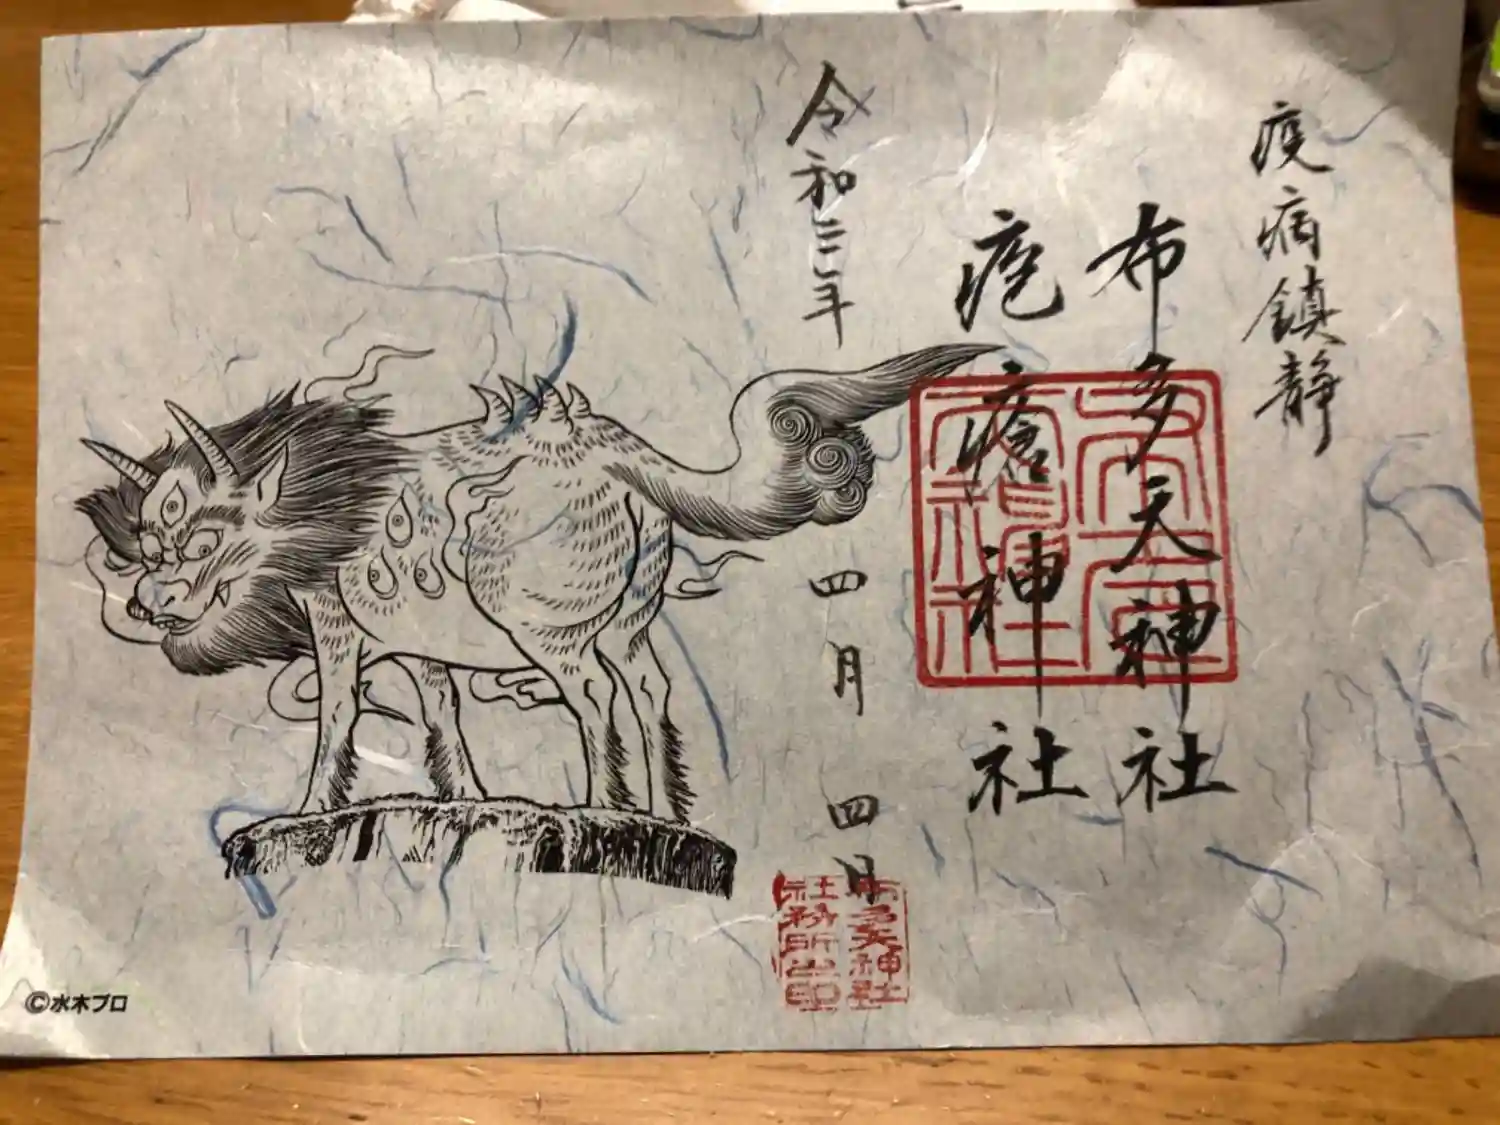 疫病鎮静
布多天神社
疱瘡神社
令和三年
四月四日
布多天神社
社務所之印
©水木プロ